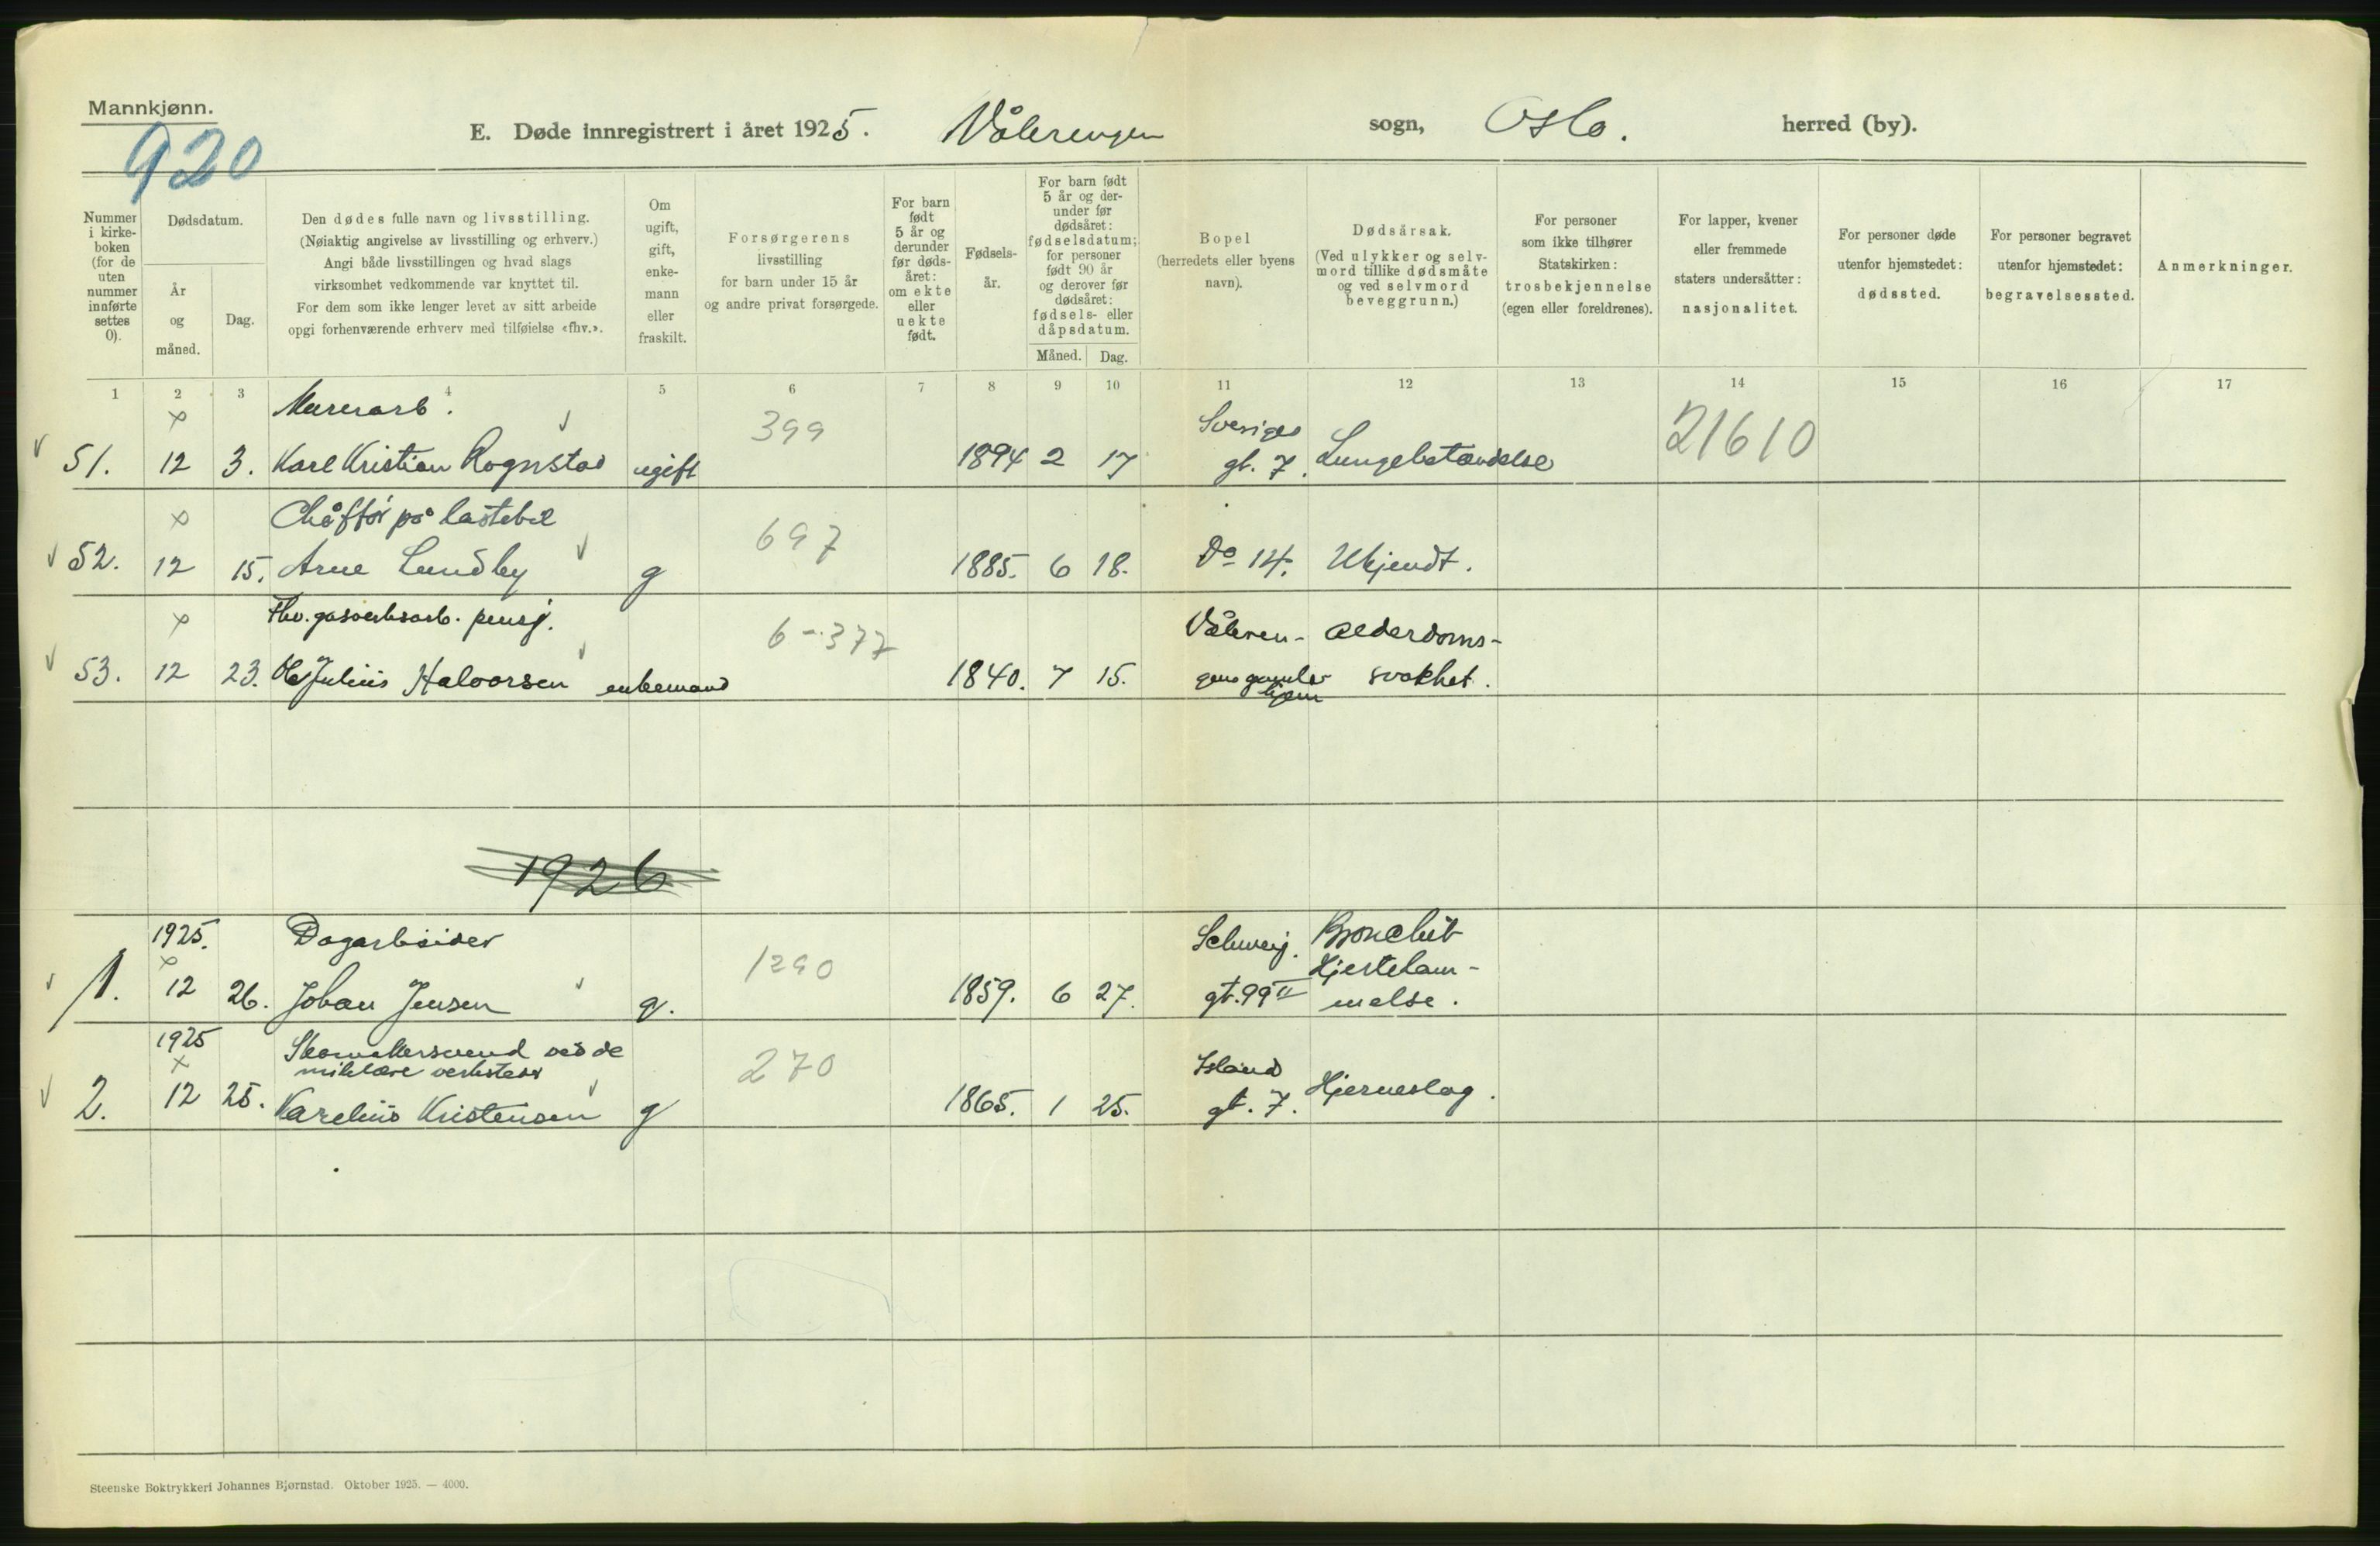 Mannkjønn.
920
E. Døde innregistrert i året 1925. Vålerengen sogn, Oslo. herred (by).
Nummer i kirke-boken (for de uten nummer innførte settes 0).
Dødsdatum.
År og måned.
Dag.
Den dødes fulle navn og livsstilling.
(Nøiaktig angivelse av livsstilling og erhverv.)
Angi både livsstillingen og hvad slags
virksomhet vedkommende var knyttet til.
For dem som ikke lenger levet av sitt arbeide
opgi forhenværende erhverv med tilføielse «fhv.».
Om ugift, gift, enke-mann eller fraskilt.
Forsørgerens
livsstilling
for barn under 15 år
og andre privat forsørgede.
For barn født 5 år og derunder før døds-året: om ekte eller uekte født.
Fødsels-år.
For barn født 5 år og der-under før dødsåret: fødselsdatum; for personer født 90 år og derover før dødsåret: fødsels- eller dåpsdatum.
Måned. Dag.
Bopel
(herredets eller byens navn).
Dødsårsak.
(Ved ulykker og selv-mord tillike dødsmåte og ved selvmord beveggrunn.)
For personer
som ikke tilhører
Statskirken:
trosbekjennelse
(egen eller foreldrenes).
For lapper, kvener
eller fremmede
staters undersåtter:
nasjonalitet.
For personer døde
utenfor hjemstedet:
dødssted.
For personer begravet
utenfor hjemstedet:
begravelsessted.
Anmerkninger.
1 2 3 4 5 6 7 8 9 10 11 12 13 14 15 16 17
x Murerarb. 399 Sveriges 21610
51. 12 3. Karl Kristian Rognstad ugift 1894 2 17 gt. 7. Lungebetændelse
x Chåffør på lastebil 697
52. 12 15. Arne Lundby g 1885. 6 18. Do 14. Ukjendt.
x Fhv. gasverksarb. pensj. 6-377 Våleren- Alderdoms-
53. 12 23. Ole Julius Halvorsen enkemand 1840. 7 15. gens gamle svakhet.
hjem
1926
1925. Dagarbeider Schweig. Bronchit
x 1290 Hjertelam-
1. 12 26. Johan Jensen g. 1859. 6 27. gt. 99 II melse.
1925 Skomakersvend ved de
x militære verksteder 270 Island
2. 12 25. Karelius Kristensen g 1865. 1 25. gt. 7. Hjerneslag.
Steenske Boktrykkeri Johannes Bjørnstad. Oktober 1925. — 4000.